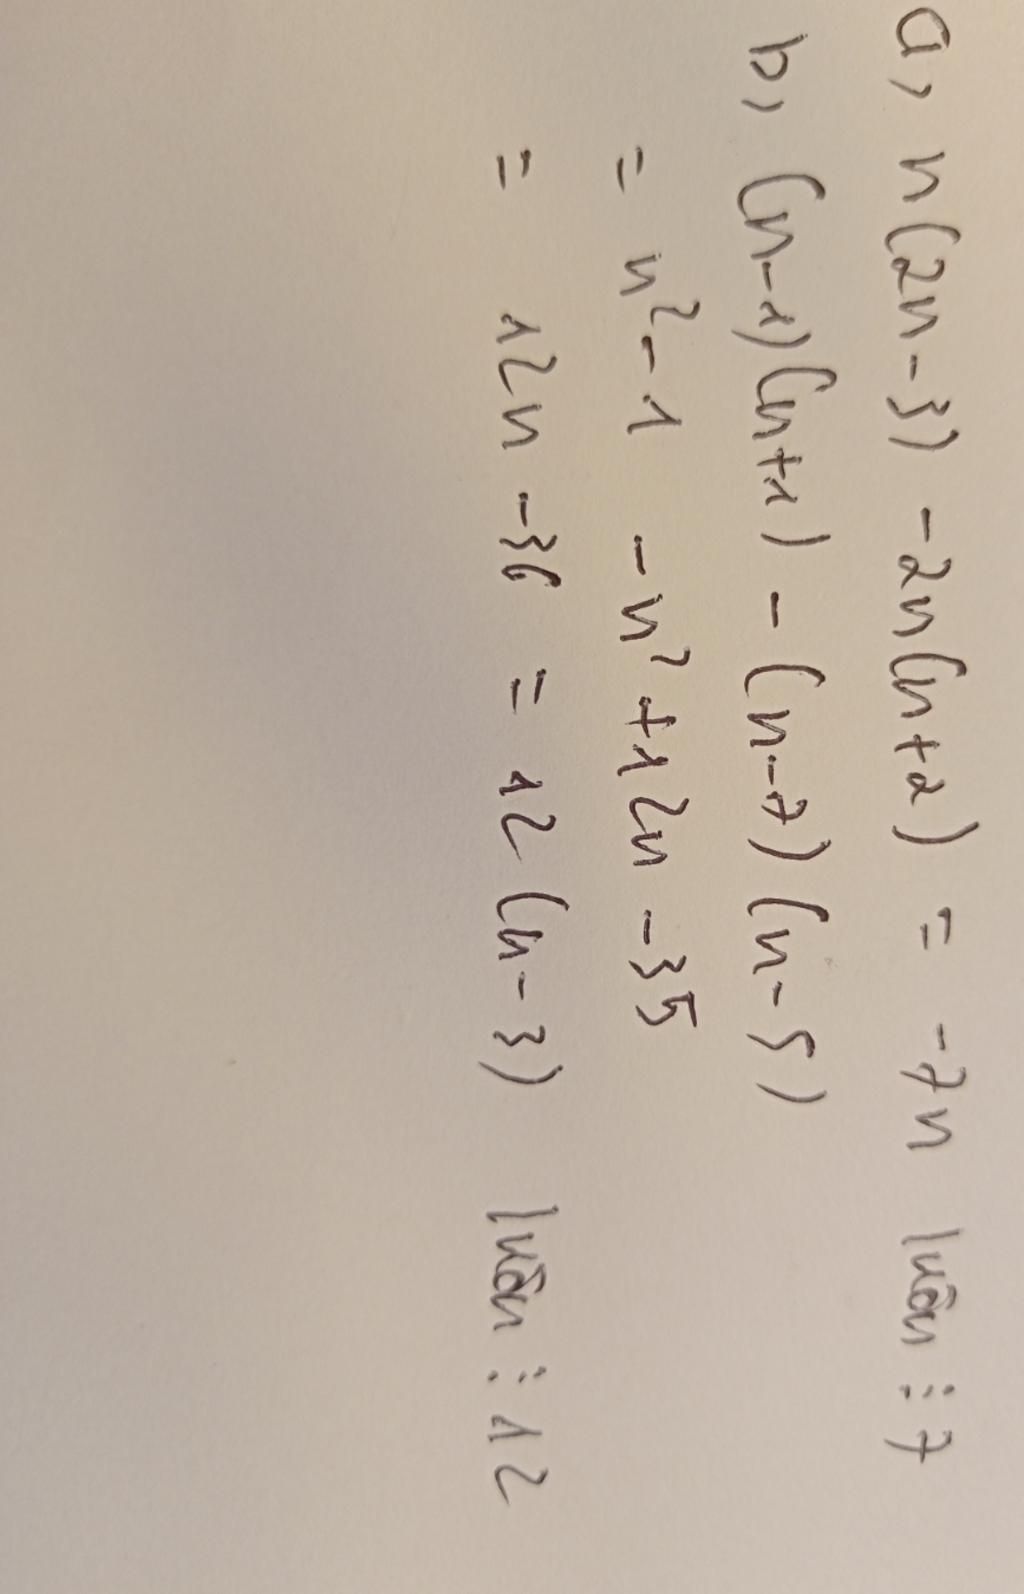 a, n(2n-3) -2n(n+2) = -7n luôn ⋮ 7
b, (n-1)(n+1) - (n-7)(n-5)
= n²-1 -n²+12n -35
= 12n -36 = 12(n-3) luôn ⋮ 12